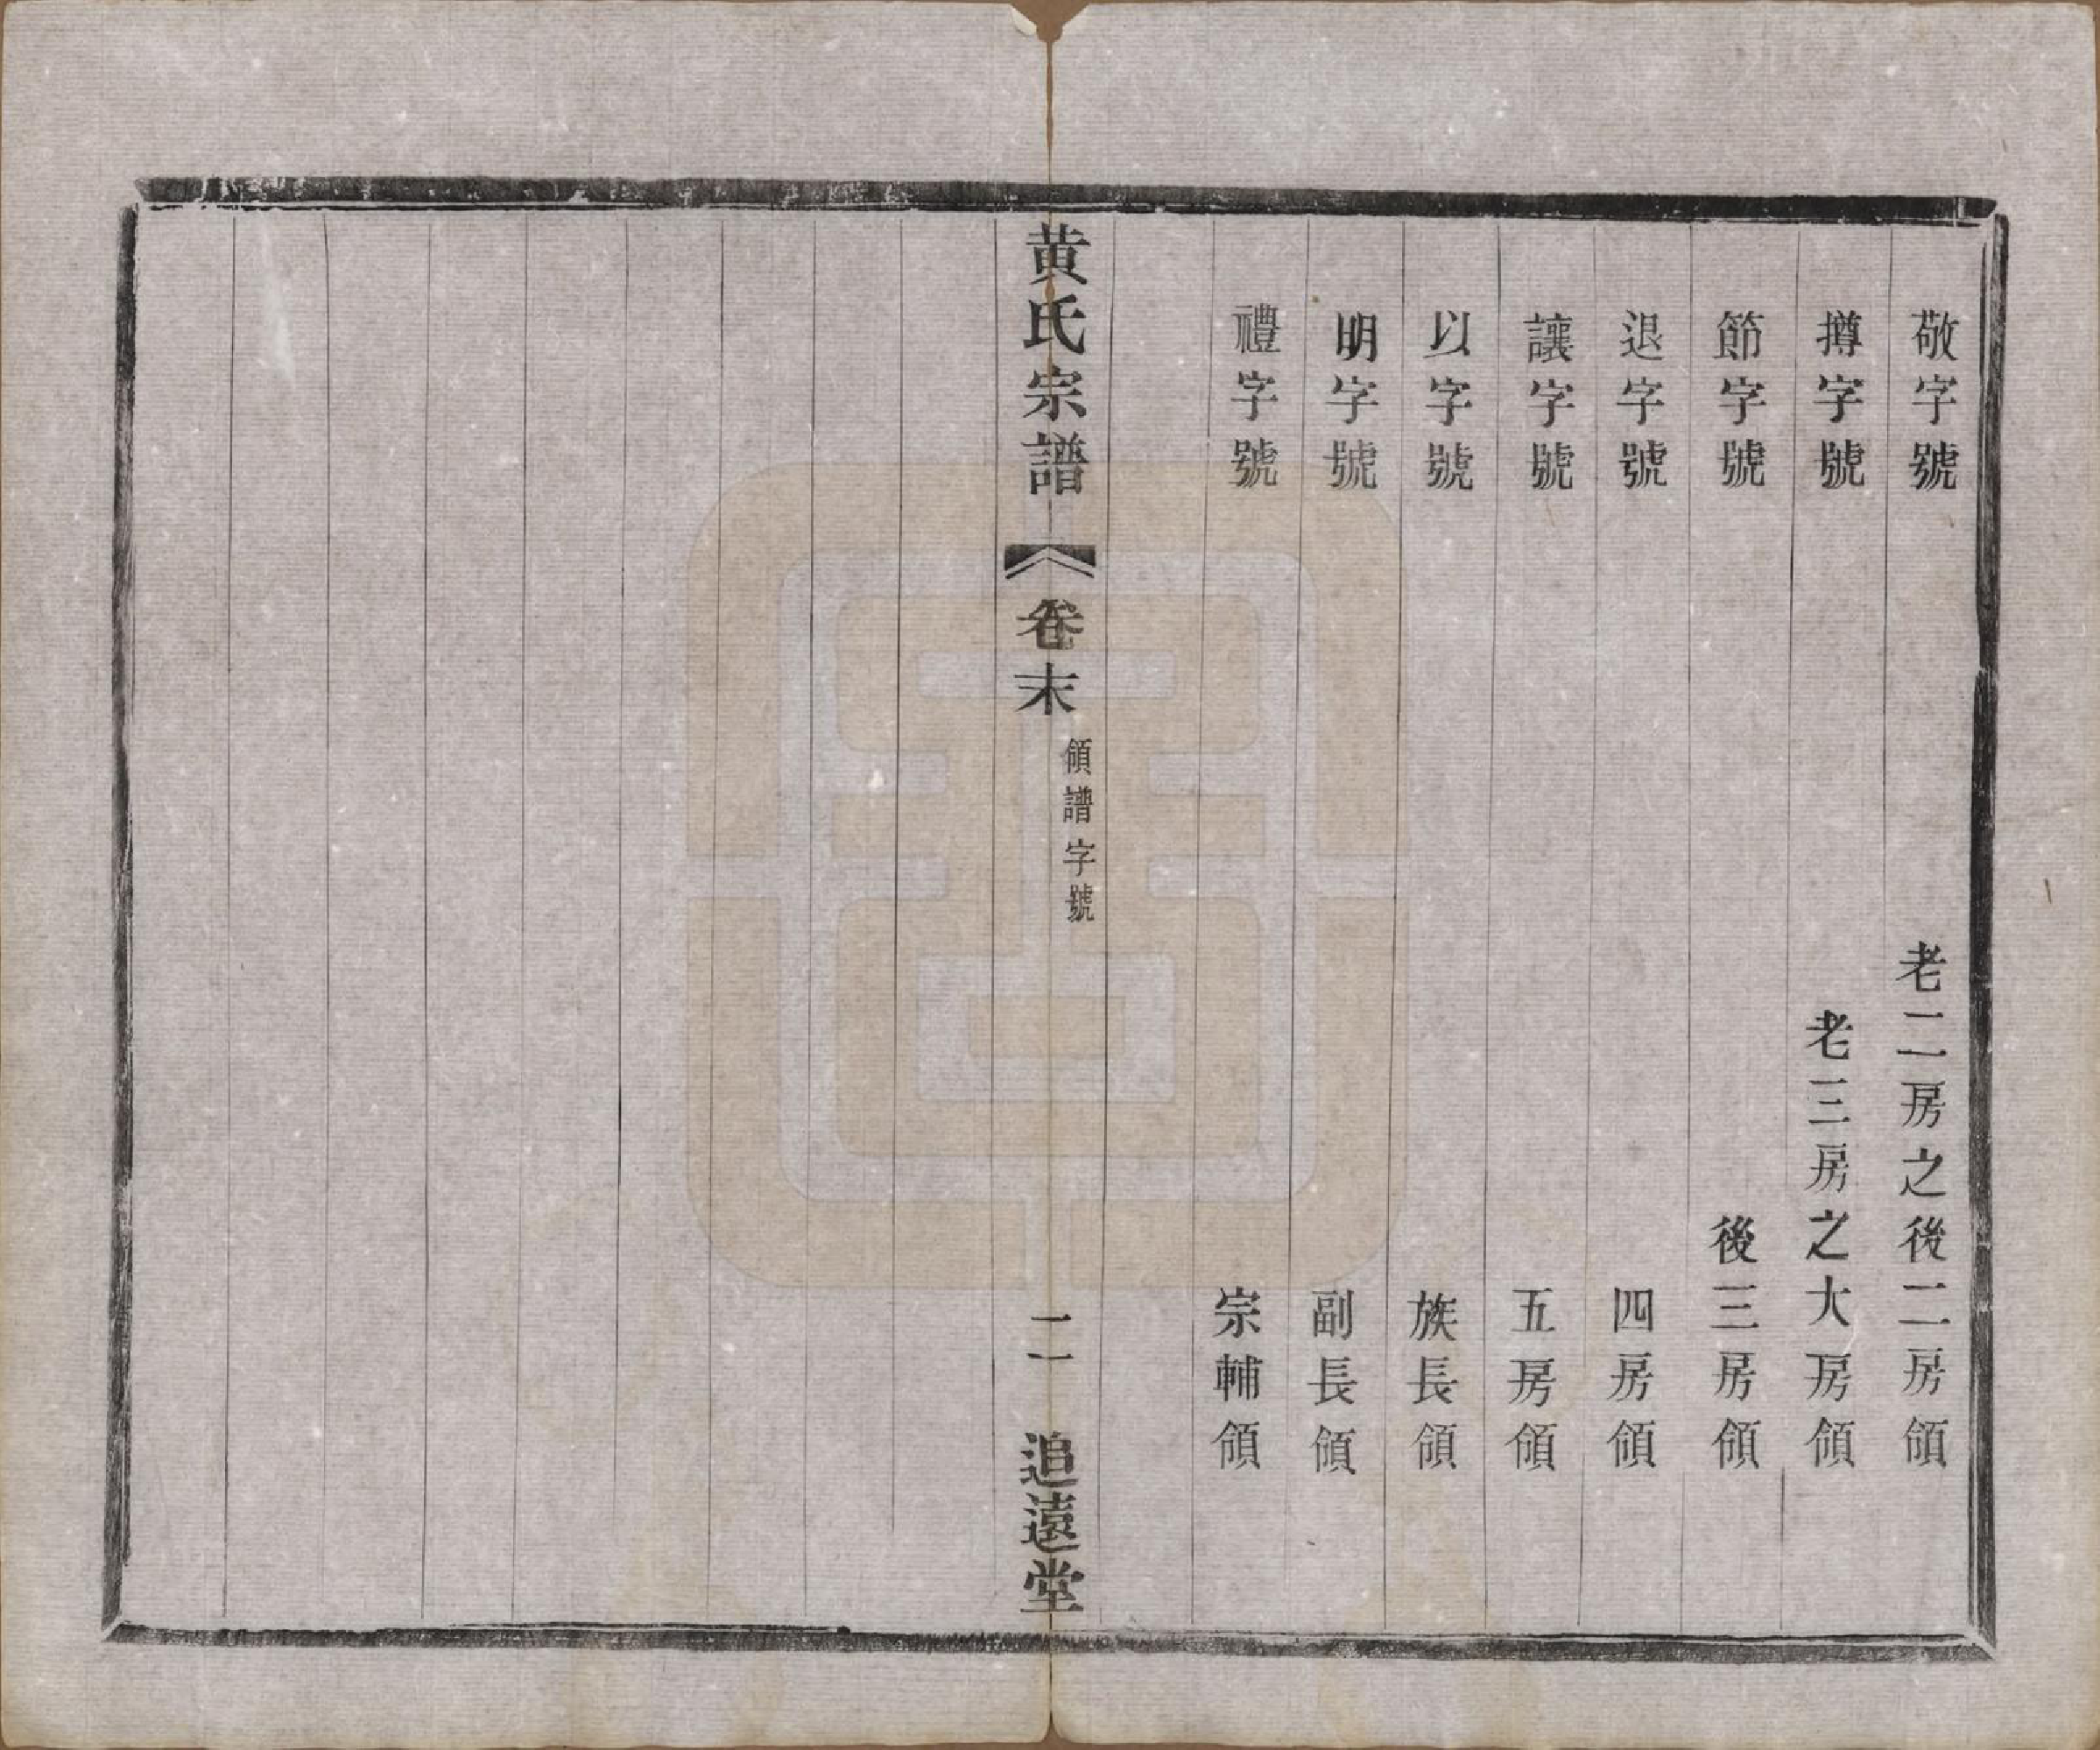 敬字號　老二房之後二房領
撙字號　老三房之大房領
節字號　後三房領
退字號　四房領
讓字號　五房領
以字號　族長領
明字號　副長領
禮字號　宗輔領
黄氏宗譜　卷末　領譜字號　二　追遠堂